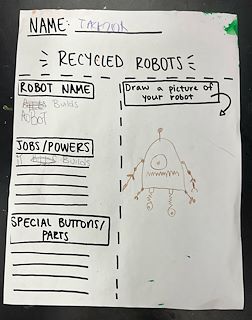 NAME: JACKSON
RECYCLED ROBOTS
ROBOT NAME
Builds
RoBOT
JOBS/POWERS
Builds
SPECIAL BUTTONS/
PARTS
Draw a picture of
your robot